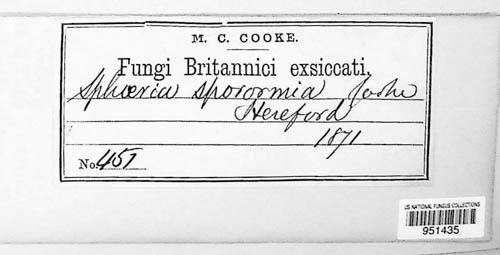 M. C. COOKE.
Fungi Britannici exsiccati.
Sphæria sporormia Cooke
Hereford
1871
No. 451
US NATIONAL FUNGUS COLLECTIONS
951435